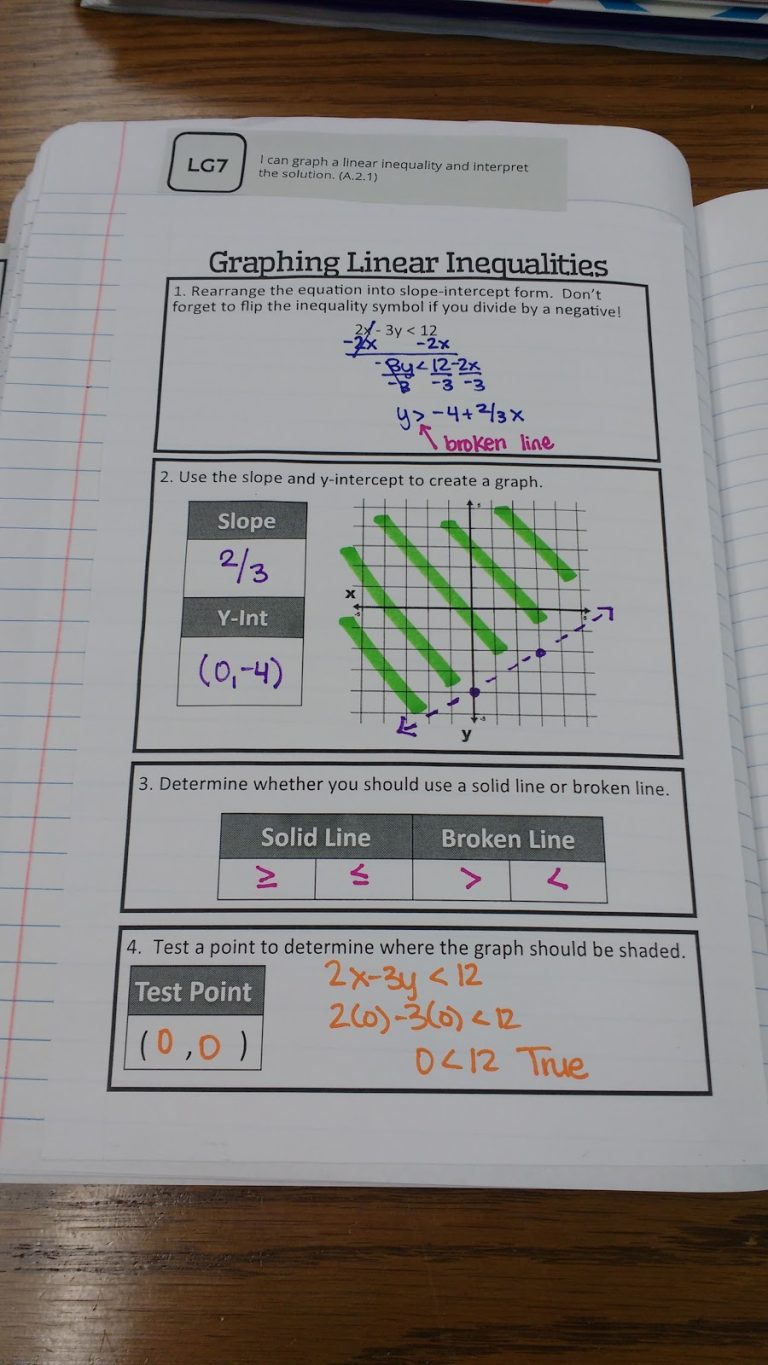 LG7
I can graph a linear inequality and interpret
the solution. (A.2.1)
Graphing Linear Inequalities
1. Rearrange the equation into slope-intercept form. Don't
forget to flip the inequality symbol if you divide by a negative!
2x - 3y < 12
-2x -2x
-3y < 12 -2x
-3 -3 -3
y > -4 + 2/3 x
broken line
2. Use the slope and y-intercept to create a graph.
Slope
2/3
Y-Int
(0,-4)
5
x
-5 5
-5
y
3. Determine whether you should use a solid line or broken line.
Solid Line Broken Line
≥ ≤ > <
4. Test a point to determine where the graph should be shaded.
Test Point
(0,0)
2x-3y < 12
2(0)-3(0) < 12
0 < 12 True